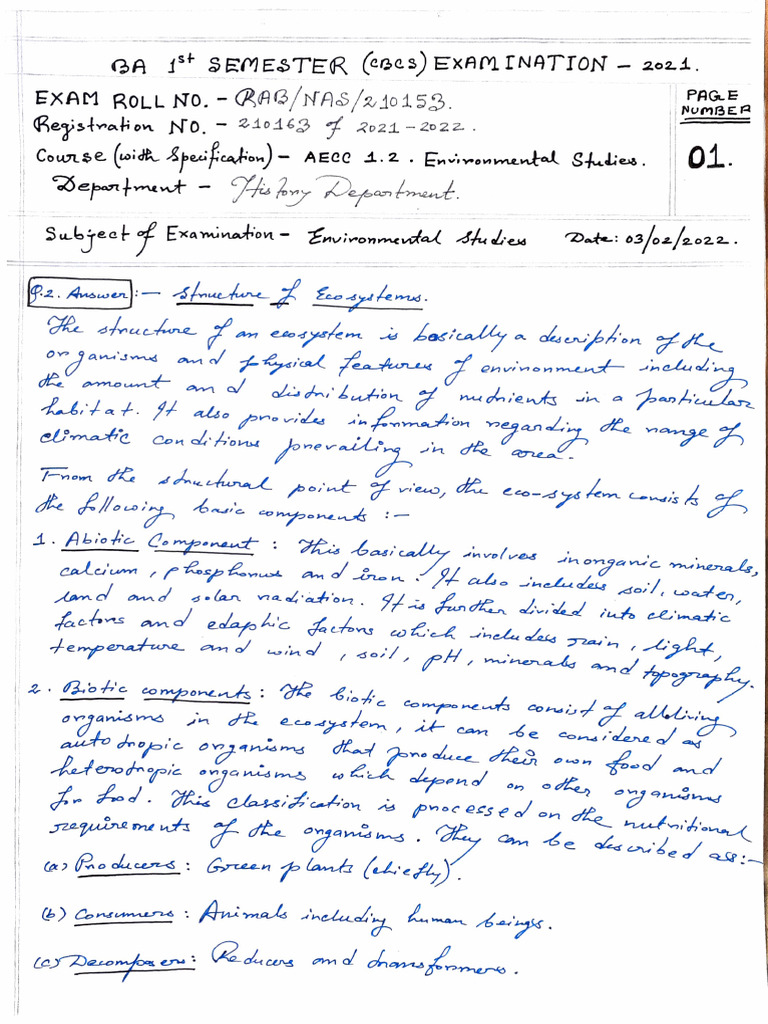 BA 1st SEMESTER (CBCS) EXAMINATION - 2021.
EXAM ROLL NO. - RAB/NAS/210153.
PAGE NUMBER
Registration NO. - 210163 of 2021-2022.
Course (with Specification) - AECC 1.2. Environmental Studies.
01.
Department - History Department.
Subject of Examination - Environmental Studies Date: 03/02/2022.
Q.2. Answer :- Structure of Ecosystems.
The structure of an ecosystem is basically a description of the
organisms and physical features of environment including
the amount and distribution of nutrients in a particular
habitat. It also provides information regarding the range of
climatic conditions prevailing in the area.
From the structural point of view, the eco-system consists of
the following basic components :-
1. Abiotic Component : This basically involves inorganic minerals,
calcium, phosphorus and iron. It also includes soil, water,
land and solar radiation. It is further divided into climatic
factors and edaphic factors which includes rain, light,
temperature and wind, soil, pH, minerals and topography.
2. Biotic components : The biotic components consist of all living
organisms in the ecosystem, it can be considered as
autotropic organisms that produce their own food and
heterotropic organisms which depend on other organisms
for food. This classification is processed on the nutritional
requirements of the organisms. They can be described as:-
(a) Producers : Green plants (chiefly).
(b) Consumers : Animals including human beings.
(c) Decomposers : Reducers and transformers.